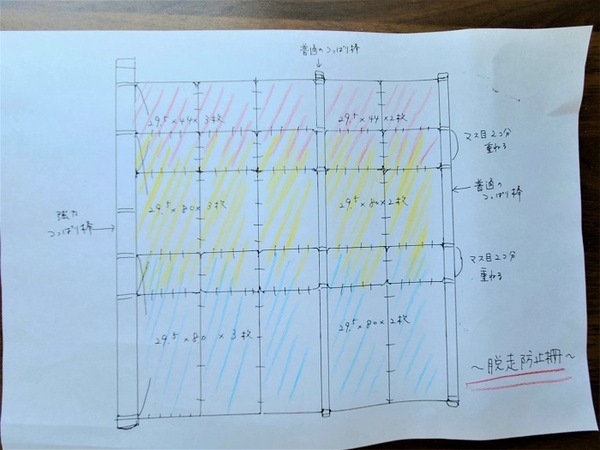 普通の つっぱり棒
29.5×44×3枚
29.5×44×2枚
マス目2つ分
重ねる
29.5×80×3枚
29.5×80×2枚
普通の
つっぱり棒
強力
つっぱり棒
マス目2つ分
重ねる
29.5×80×3枚
29.5×80×2枚
〜脱走防止柵〜